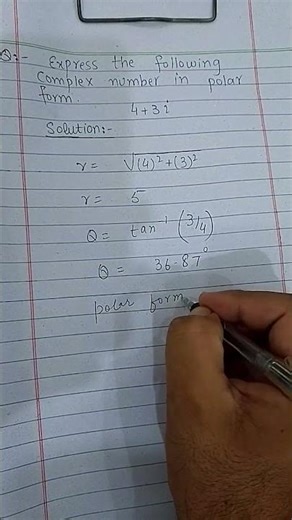 Q:- Express the following
Complex number in polar
form.
4+3i
Solution:-
r = √(4)²+(3)²
r = 5
θ = tan⁻¹ (3/4)
θ = 36.87°
polar form